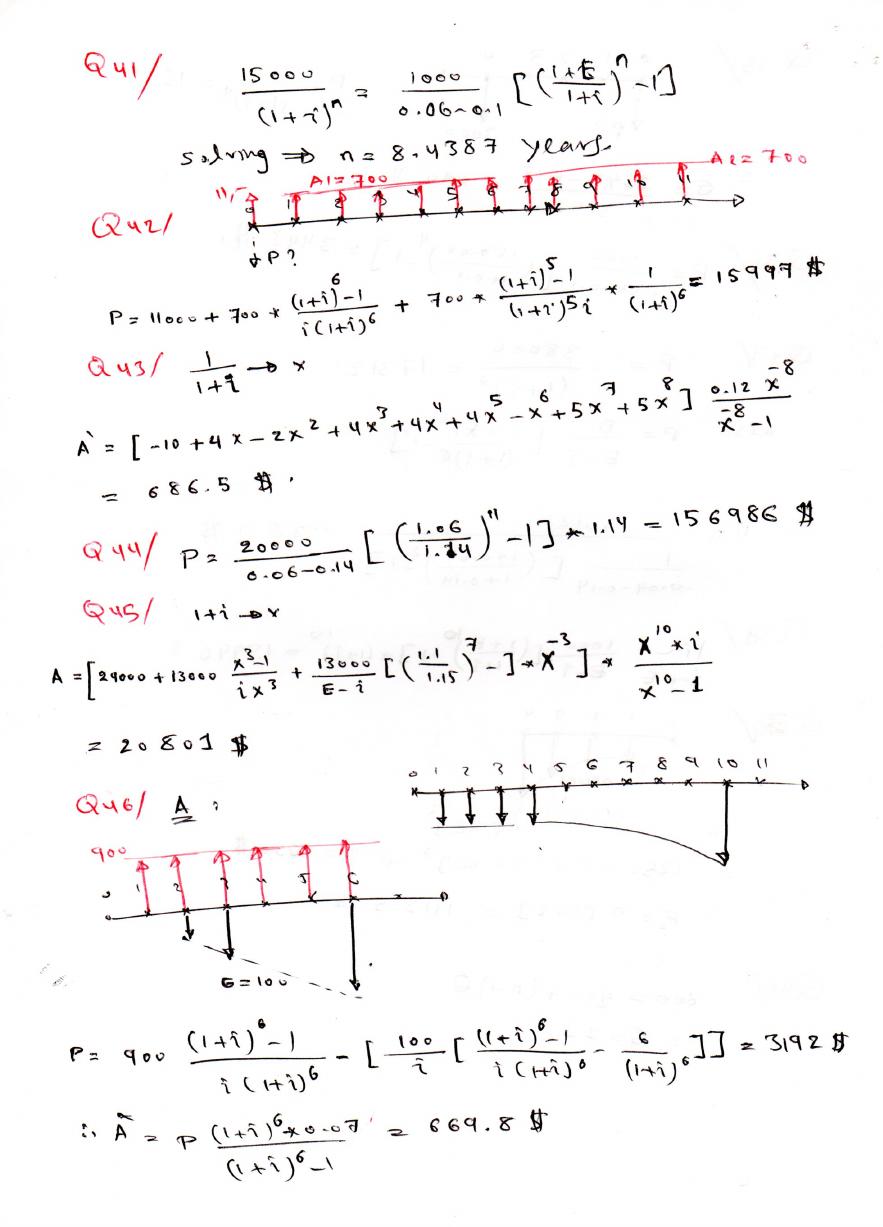 Q41/ 15000/(1+i)^n = 1000/(0.06-0.1) [((1+E)/(1+i))^n -1]
solving ⇒ n = 8.4387 years.
A1=700 A2=700
0 1 2 3 4 5 6 7 8 9 10 11
Q42/
P?
P = 11000 + 700 * ((1+i)^6 -1)/(i(1+i)^6) + 700 * ((1+i)^5 -1)/((1+i)^5 i) * 1/(1+i)^6 = 15997 $
Q43/ 1/(1+i) → x
A = [-10 +4x -2x^2 +4x^3 +4x^4 +4x^5 -x^6 +5x^7 +5x^8] 0.12 x^-8/(x^-8 -1)
= 686.5 $.
Q44/ P = 20000/(0.06-0.14) [(1.06/1.14)^11 -1] * 1.14 = 156986 $
Q45/ 1+i → x
A = [29000 + 13000 (x^3-1)/(ix^3) + 13000/(E-i) [(1.1/1.15)^7 -] * x^-3] * (x^10 * i)/(x^10 -1)
= 20801 $
0 1 2 3 4 5 6 7 8 9 10 11
Q46/ A ?
900
0 1 2 3 4 5 6
G=100
P = 900 ((1+i)^6 -1)/(i(1+i)^6) - [100/i [((1+i)^6 -1)/(i(1+i)^6) - 6/(1+i)^6]] = 3192 $
∴ A = P ((1+i)^6 * 0.07)/((1+i)^6 -1) = 669.8 $